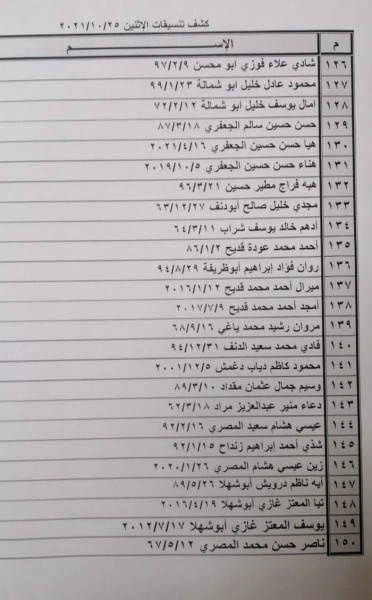 كشف تنسيقات الإثنين ٢٠٢١/١٠/٢٥
م الإســـم
١٢٦ شادي علاء فوزي ابو محسن ٩٧/٢/٩
١٢٧ محمود عادل خليل ابو شمالة ٩٩/١/٢٣
١٢٨ امال يوسف خليل ابو شمالة ٧٢/٢/١٢
١٢٩ حسن حسين سالم الجعفري ٨٧/٣/١٨
١٣٠ هيا حسن حسين الجعفري ٢٠٢١/٤/١٦
١٣١ هناء حسن حسين الجعفري ٢٠١٩/١٠/٥
١٣٢ هبه فراج مطير حسين ٩٦/٣/٢١
١٣٣ مجدي خليل صالح أبودنف ٦٣/١٢/٢٧
١٣٤ أدهم خالد يوسف شراب ٦٤/٣/١١
١٣٥ أحمد محمد عودة قديح ٨٦/١/٢
١٣٦ روان فؤاد إبراهيم أبوظريفة ٩٤/٨/٢٩
١٣٧ ميرال أحمد محمد قديح ٢٠١٦/١/١٢
١٣٨ أمجد أحمد محمد قديح ٢٠١٧/٧/٩
١٣٩ مروان رشيد محمد ياغي ٦٨/٩/١٦
١٤٠ فادي محمد سعيد الدنف ٩٤/١٢/٣١
١٤١ محمود كاظم دياب دغمش ٢٠٠١/١٢/٥
١٤٢ وسيم جمال عثمان مقداد ٨٩/٣/١٠
١٤٣ دعاء منير عبدالعزيز مراد ٦٢/٣/١٨
١٤٤ عيسي هشام سعيد المصري ٩٢/٢/١٦
١٤٥ شذي أحمد إبراهيم زنداح ٩٢/١/١٥
١٤٦ زين عيسي هشام المصري ٢٠٢٠/١/٢٦
١٤٧ آيه ناظم درويش أبوشهلا ٨٩/٥/٢٦
١٤٨ تيا المعتز غازي أبوشهلا ٢٠١٦/٤/١٩
١٤٩ يوسف المعتز غازي أبوشهلا ٢٠١٢/٧/١٧
١٥٠ ناصر حسن محمد المصري ٦٧/٥/١٢